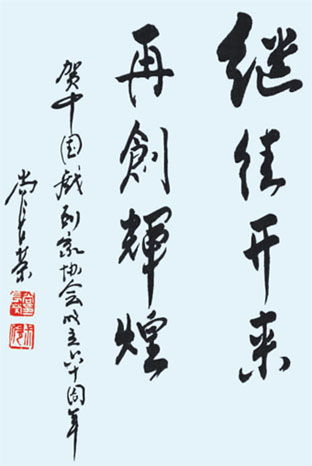 继往开来
再創輝煌
贺中国戏剧家协会成立六十周年
尚长荣